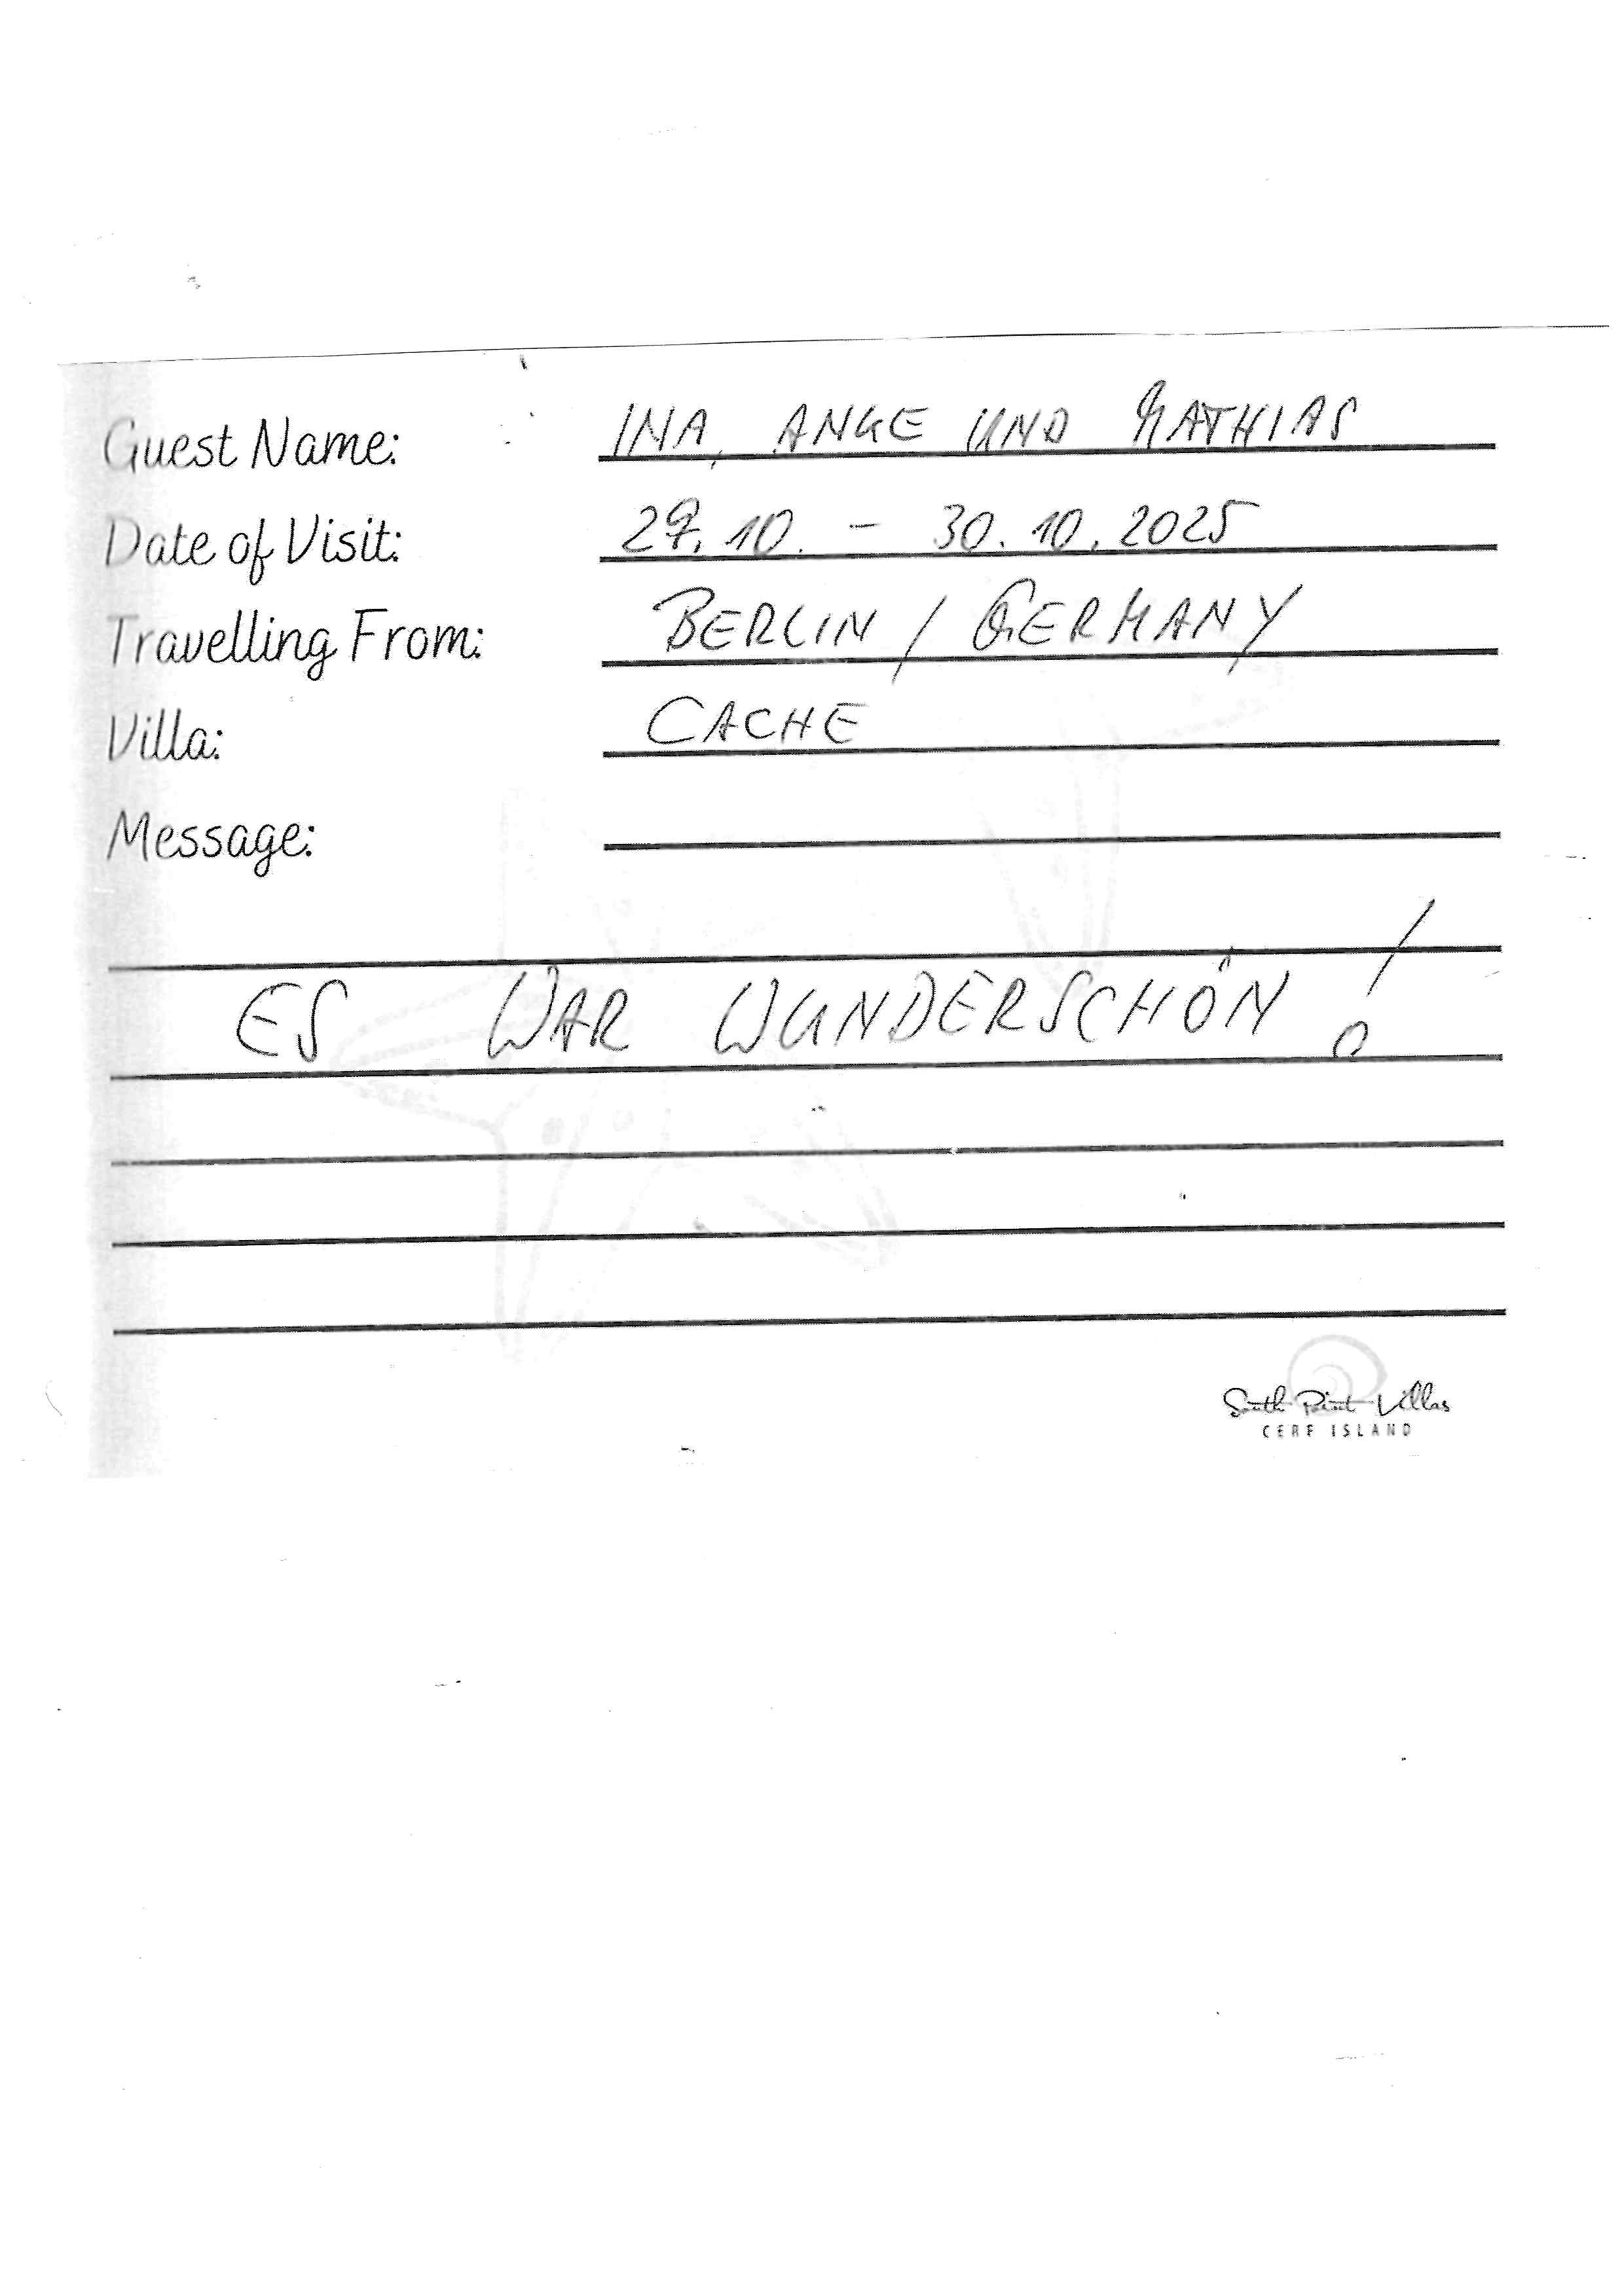 Guest Name: INA, ANKE UND MATHIAS
Date of Visit: 27.10. - 30.10.2025
Travelling From: BERLIN / GERMANY
Villa: CACHE
Message:
ES WAR WUNDERSCHÖN!
South Point Villas
CERF ISLAND